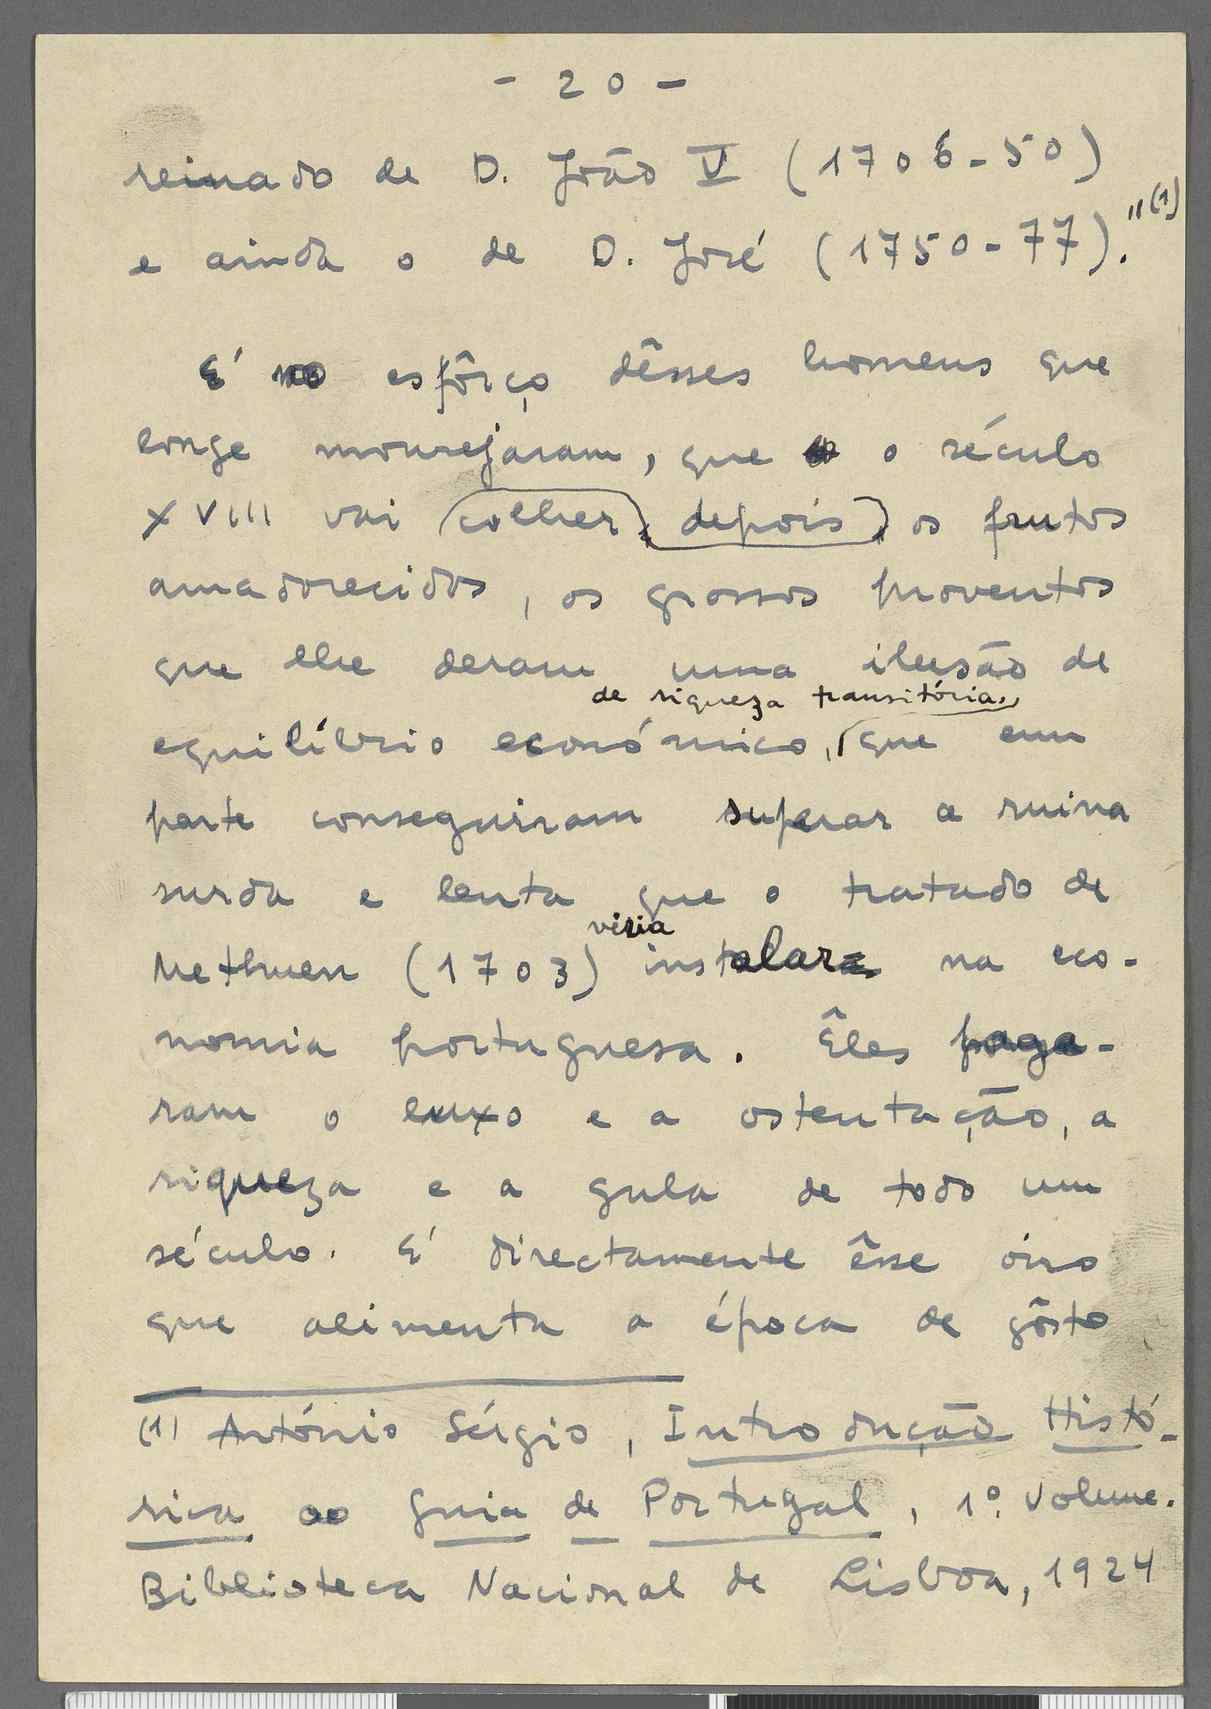 - 20 -
reinado de D. João V (1706-50)
e ainda o de D. José (1750-77)."(1)
É no esfôrço dêsses homens que
longe mourejaram, que o século
XVIII vai colher depois os frutos
amadorecidos, os grossos proventos
que lhe deram uma ilusão de
de riqueza transitória,
equilíbrio económico, que em
parte conseguiram superar a ruina
surda e lenta que o tratado de
viria
Methuen (1703) instalar na eco-
nomia portuguesa. Êles paga-
ram o luxo e a ostentação, a
riqueza e a gula de todo um
século. É directamente êsse óiro
que alimenta a época de gôsto
(1) António Sérgio, Introdução Histó-
rica ao Guia de Portugal, 1º. volume.
Biblioteca Nacional de Lisboa, 1924